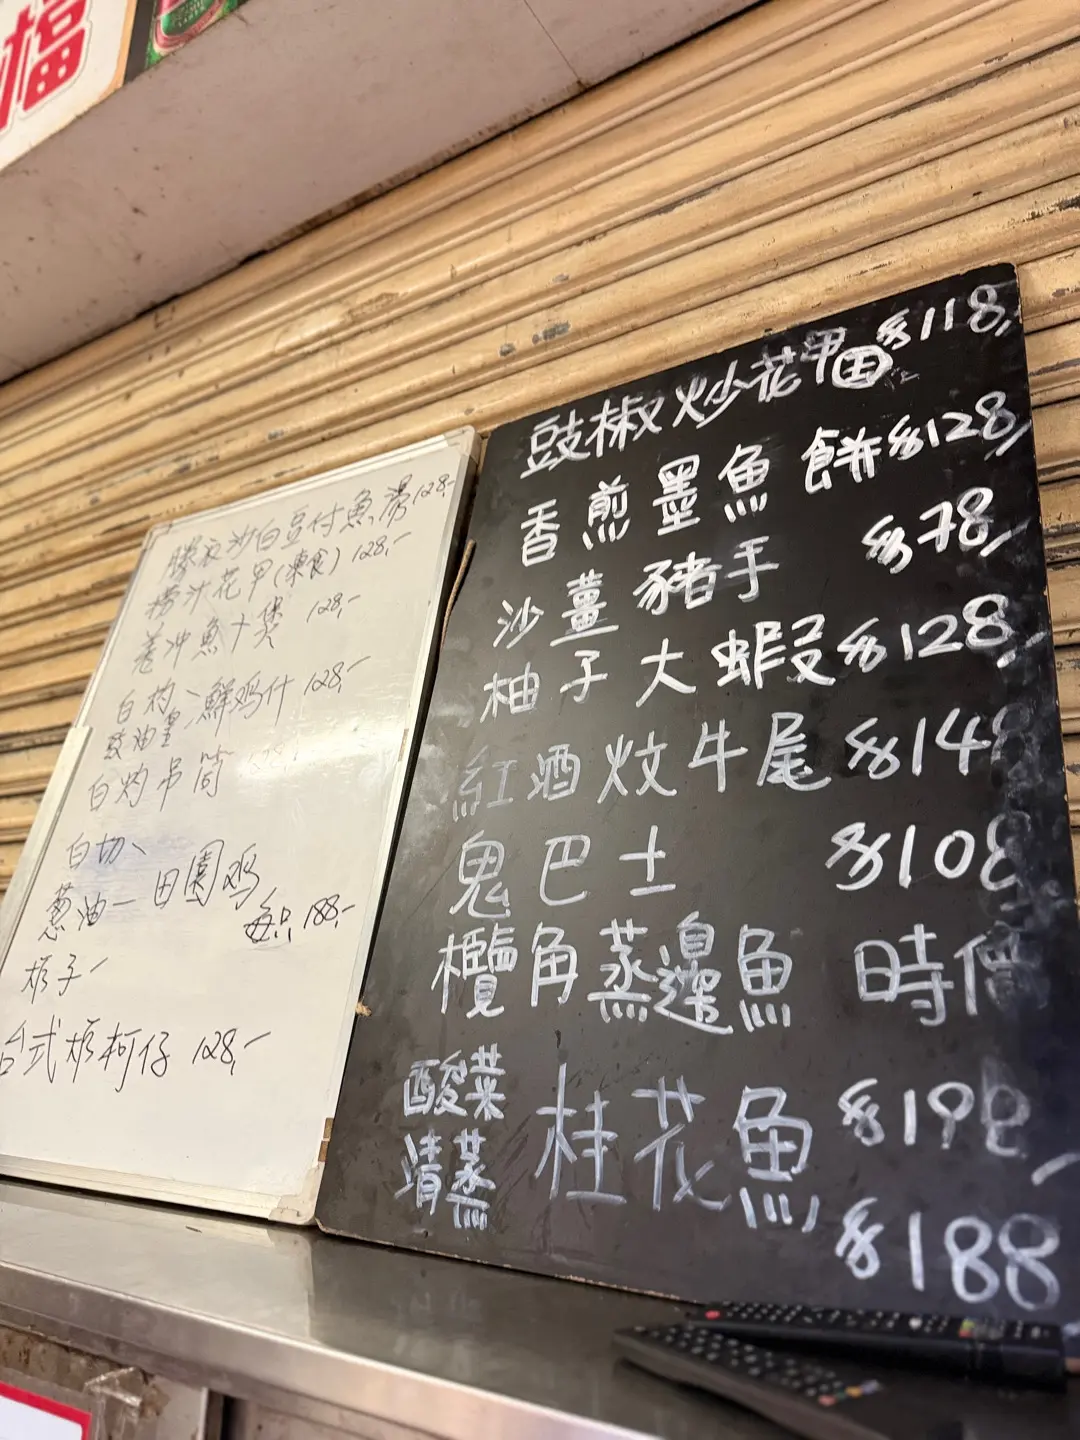 福
豆付魚湯128-
撈汁花甲(凍食)128-
魚十煲 128-
白灼
豉油皇 鮮鸡什 128-
白灼吊筒
白切、
葱油一田園鸡
每只188-
台式 蚵仔 128-
豉椒炒花甲 $118
香煎墨魚餅$128
沙薑豬手 $78
柚子大蝦$128
紅酒炆牛尾$148
鬼巴士 $108
欖角蒸邊魚 時價
酸菜 桂花魚 $198
清蒸 $188